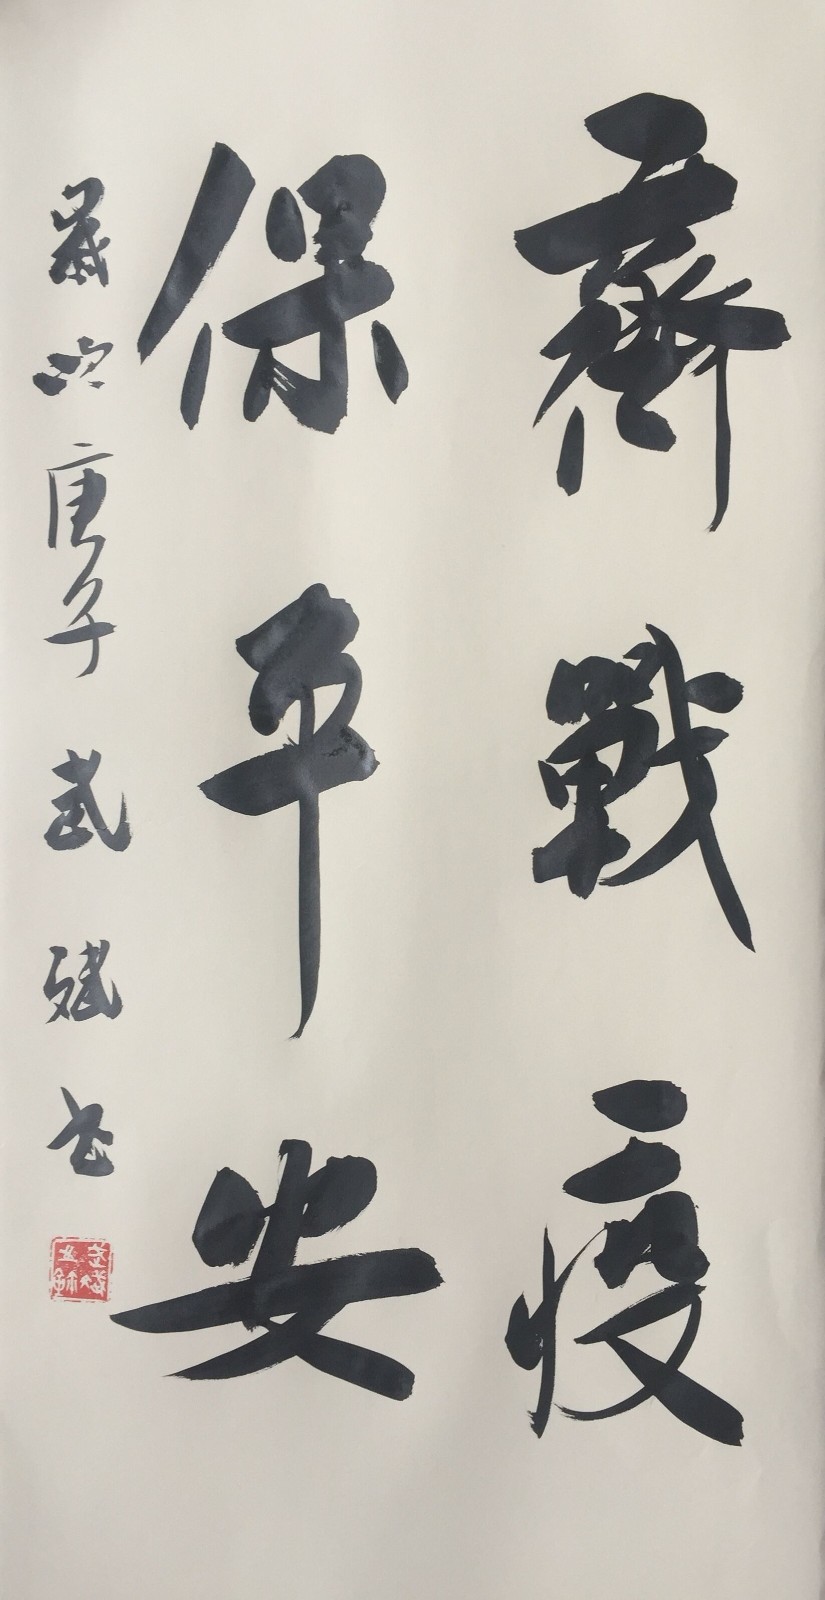 齊戰疫
保平安
歲次庚子武斌书